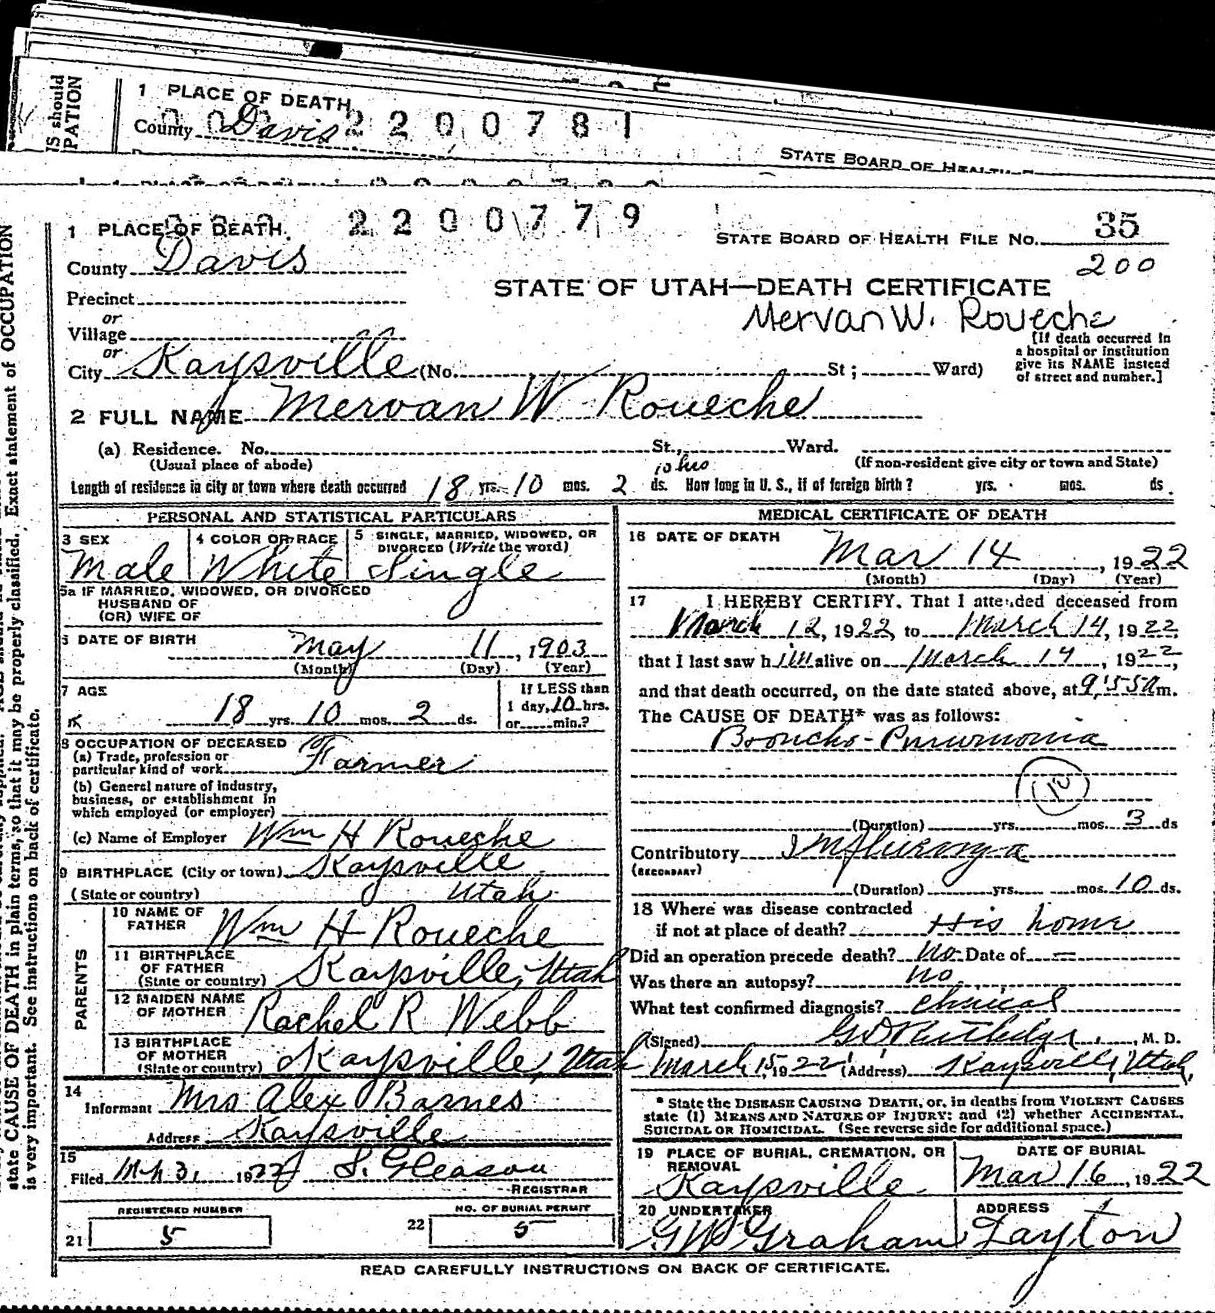 IS should
PATION
1 PLACE OF DEATH
County Davis 2200781
STATE BOARD OF HEALTH
state CAUSE OF DEATH in plain terms, so that it may be properly classified. Exact statement of OCCUPATION
is very important. See instructions on back of certificate.
2200779
1 PLACE OF DEATH.
STATE BOARD OF HEALTH FILE NO. 35
200
County Davis
STATE OF UTAH—DEATH CERTIFICATE
Precinct
or
Mervan W. Roueche
Village
or
City Kaysville (No. St; Ward)
[If death occurred in
a hospital or institution
give its NAME instead
of street and number.]
2 FULL NAME Mervan W Roueche
(a) Residence. No. St., Ward.
(Usual place of abode) (If non-resident give city or town and State)
Length of residence in city or town where death occurred 18 yrs. 10 mos. 2 ds. 10 hrs How long in U. S., if of foreign birth? yrs. mos. ds.
PERSONAL AND STATISTICAL PARTICULARS
3 SEX
Male
4 COLOR OR RACE
White
5 SINGLE, MARRIED, WIDOWED, OR
DIVORCED (Write the word)
Single
5a IF MARRIED, WIDOWED, OR DIVORCED
HUSBAND OF
(OR) WIFE OF
6 DATE OF BIRTH May 11, 1903
(Month) (Day) (Year)
7 AGE
18 yrs. 10 mos. 2 ds.
If LESS than
1 day, 10 hrs.
or min.?
8 OCCUPATION OF DECEASED
(a) Trade, profession or
particular kind of work Farmer
(b) General nature of industry,
business, or establishment in
which employed (or employer)
(c) Name of Employer Wm H Roueche
9 BIRTHPLACE (City or town) Kaysville
(State or country) Utah
PARENTS
10 NAME OF
FATHER Wm H Roueche
11 BIRTHPLACE
OF FATHER
(State or country) Kaysville, Utah
12 MAIDEN NAME
OF MOTHER Rachel R Webb
13 BIRTHPLACE
OF MOTHER
(State or country) Kaysville, Utah
14
Informant Mrs Alex Barnes
Address Kaysville
15
Filed 31, 1922 S. Gleason
REGISTRAR
REGISTERED NUMBER
21 5
NO. OF BURIAL PERMIT
22 5
MEDICAL CERTIFICATE OF DEATH
16 DATE OF DEATH
Mar 14, 1922
(Month) (Day) (Year)
17 I HEREBY CERTIFY, That I attended deceased from
March 12, 1922 to March 14, 1922
that I last saw him alive on March 14, 1922,
and that death occurred, on the date stated above, at 9:55 a m.
The CAUSE OF DEATH* was as follows:
Broncho-Pneumonia
10
(Duration) yrs. mos. 3 ds
Contributory Influenza
(SECONDARY)
(Duration) yrs. mos. 10 ds.
18 Where was disease contracted
if not at place of death? His home
Did an operation precede death? no Date of
Was there an autopsy? no
What test confirmed diagnosis? clinical
(Signed) G D Rutledge, M. D.
March 15, 1922 (Address) Kaysville, Utah
* State the DISEASE CAUSING DEATH, or, in deaths from VIOLENT CAUSES
state (1) MEANS AND NATURE OF INJURY; and (2) whether ACCIDENTAL,
SUICIDAL OR HOMICIDAL. (See reverse side for additional space.)
19 PLACE OF BURIAL, CREMATION, OR
REMOVAL
Kaysville
DATE OF BURIAL
Mar 16, 1922
20 UNDERTAKER
G W Graham
ADDRESS
Layton
READ CAREFULLY INSTRUCTIONS ON BACK OF CERTIFICATE.